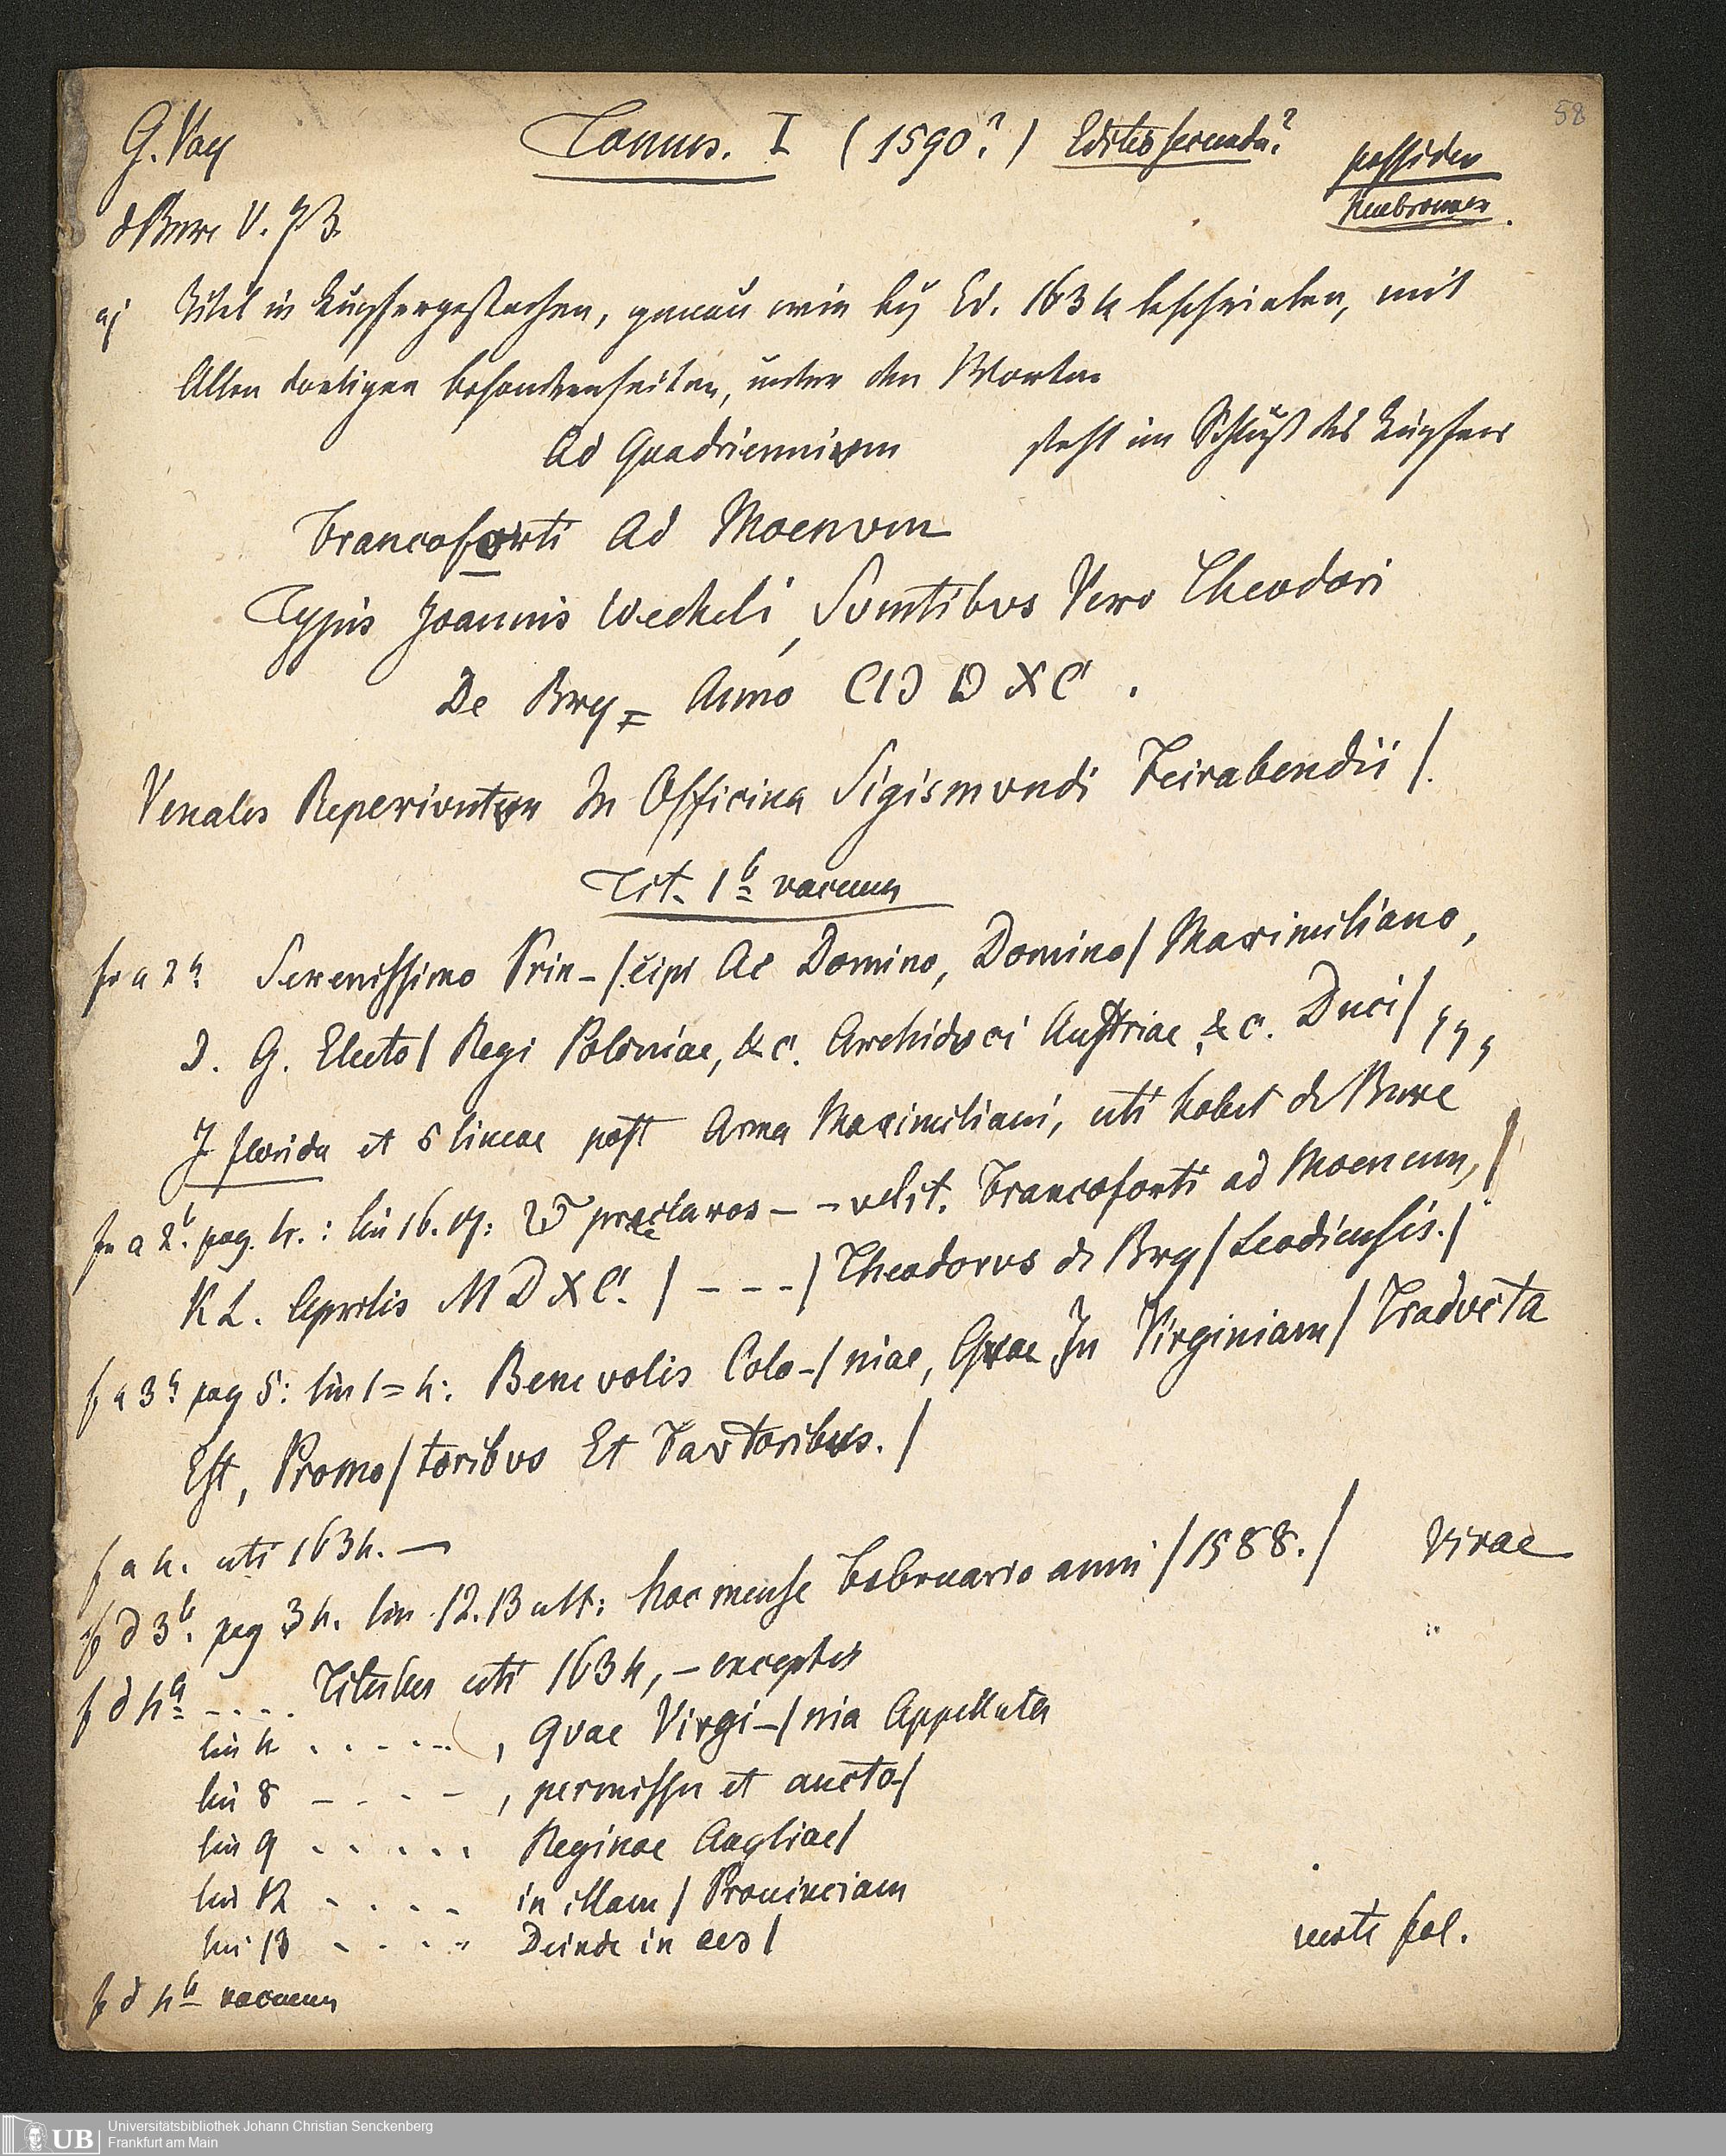 58
G. Voy Tomus. I (1590?) Editio secunda? possideo
d Bure V. 73.
a) Titel in Kupfergestochen, genau wie by Ed. 1634 beschrieben, mit
Allen dortigen besonderheiten, unter den Worten
Ad Quadriennivm steht im Schluß des Kupfers
Francoforti Ad Moenvm
Typis Joannis Wecheli, Svmtibvs Vero Theodori
De Bry = Anno CIↃ IↃ XC.
Venales Reperivntvr In Officina Sigismvndi Feirabendii /.
Tit. 1b vacuum
fr a 2a Serenissimo Prin-/cipi Ac Domino, Domino/ Maximiliano,
D. G. Electo/ Regi Poloniae, &c. Archidvci Austriae, &c. Duci/
J florida et 5 lineae post Arma Maximiliani, uti habet de Bure
fr a 2b. pag. 4.: lin 16. 17: praeclaros - - velit. Francoforti ad Moenum,/
KL. Aprilis MDXC. / - - - / Theodorvs de Bry / Leodiensis./
f a 3a pag 5: lin 1=4: Benevolis Colo-/niae, Qvae In Virginiam/ Tradvcta
Est, Promo/toribvs Et Favtoribvs. /
f a 4. uti 1634. —
f d 3b. pag 34. lin. 12. 13 ult: hac mense Februario anni / 1588. / Virae
f d 4a - . . . Titulus uti 1634, - exceptis
lin 4 . . . . . , qvae Virgi-/nia Appellata
lin 8 - . . . - , permissu et aucto-/
lin 9 . . . . . Reginae Angliae/
lin 12 . . . . in illam / Prouinciam
lin 13 . . . . Deinde in aes /
verte fol.
f d 4b vacuum
UB Universitätsbibliothek Johann Christian Senckenberg
Frankfurt am Main